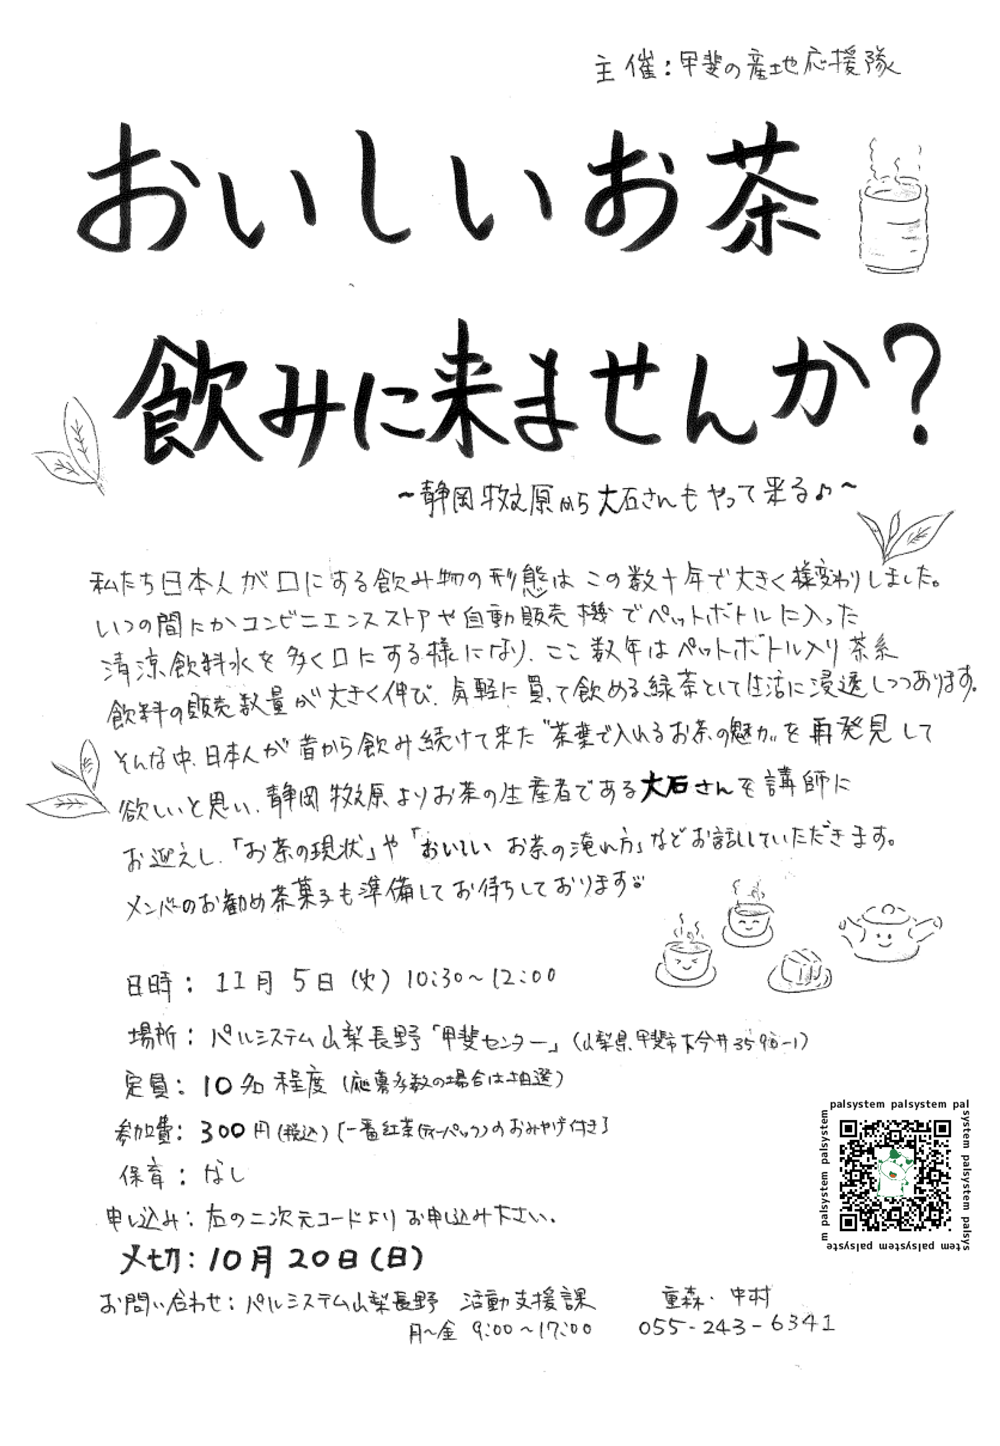 主催:甲斐の産地応援隊
おいしいお茶
飲みに来ませんか?
~静岡牧之原から大石さんもやって来る♪~
私たち日本人が口にする飲み物の形態はこの数十年で大きく様変わりしました。
いつの間にかコンビニエンスストアや自動販売機でペットボトルに入った
清涼飲料水を多く口にする様になり、ここ数年はペットボトル入り茶系
飲料の販売数量が大きく伸び、気軽に買って飲める緑茶として生活に浸透しつつあります。
そんな中、日本人が昔から飲み続けて来た〝茶葉で入れるお茶の魅力〟を再発見して
欲しいと思い、静岡牧之原よりお茶の生産者である大石さんを講師に
お迎えし、「お茶の現状」や「おいしいお茶の淹れ方」などお話ししていただきます。
メンバーのお勧め茶菓子も準備してお待ちしております
日時: 11月5日(火) 10:30~12:00
場所: パルシステム山梨長野「甲斐センター」(山梨県甲斐市大下条3596-1)
定員: 10名程度 (応募多数の場合は抽選)
参加費: 300円(税込) [一番紅茶(ティーパック)のおみやげ付き]
保育: なし
申し込み: 右の二次元コードよりお申し込み下さい.
〆切: 10月20日(日)
お問い合わせ: パルシステム山梨長野 活動支援課 重森・中村
月~金 9:00~17:00 055-243-6341
palsystem palsystem pal
system palsystem palsys
tem palsystem palsyste
m palsystem palsystem